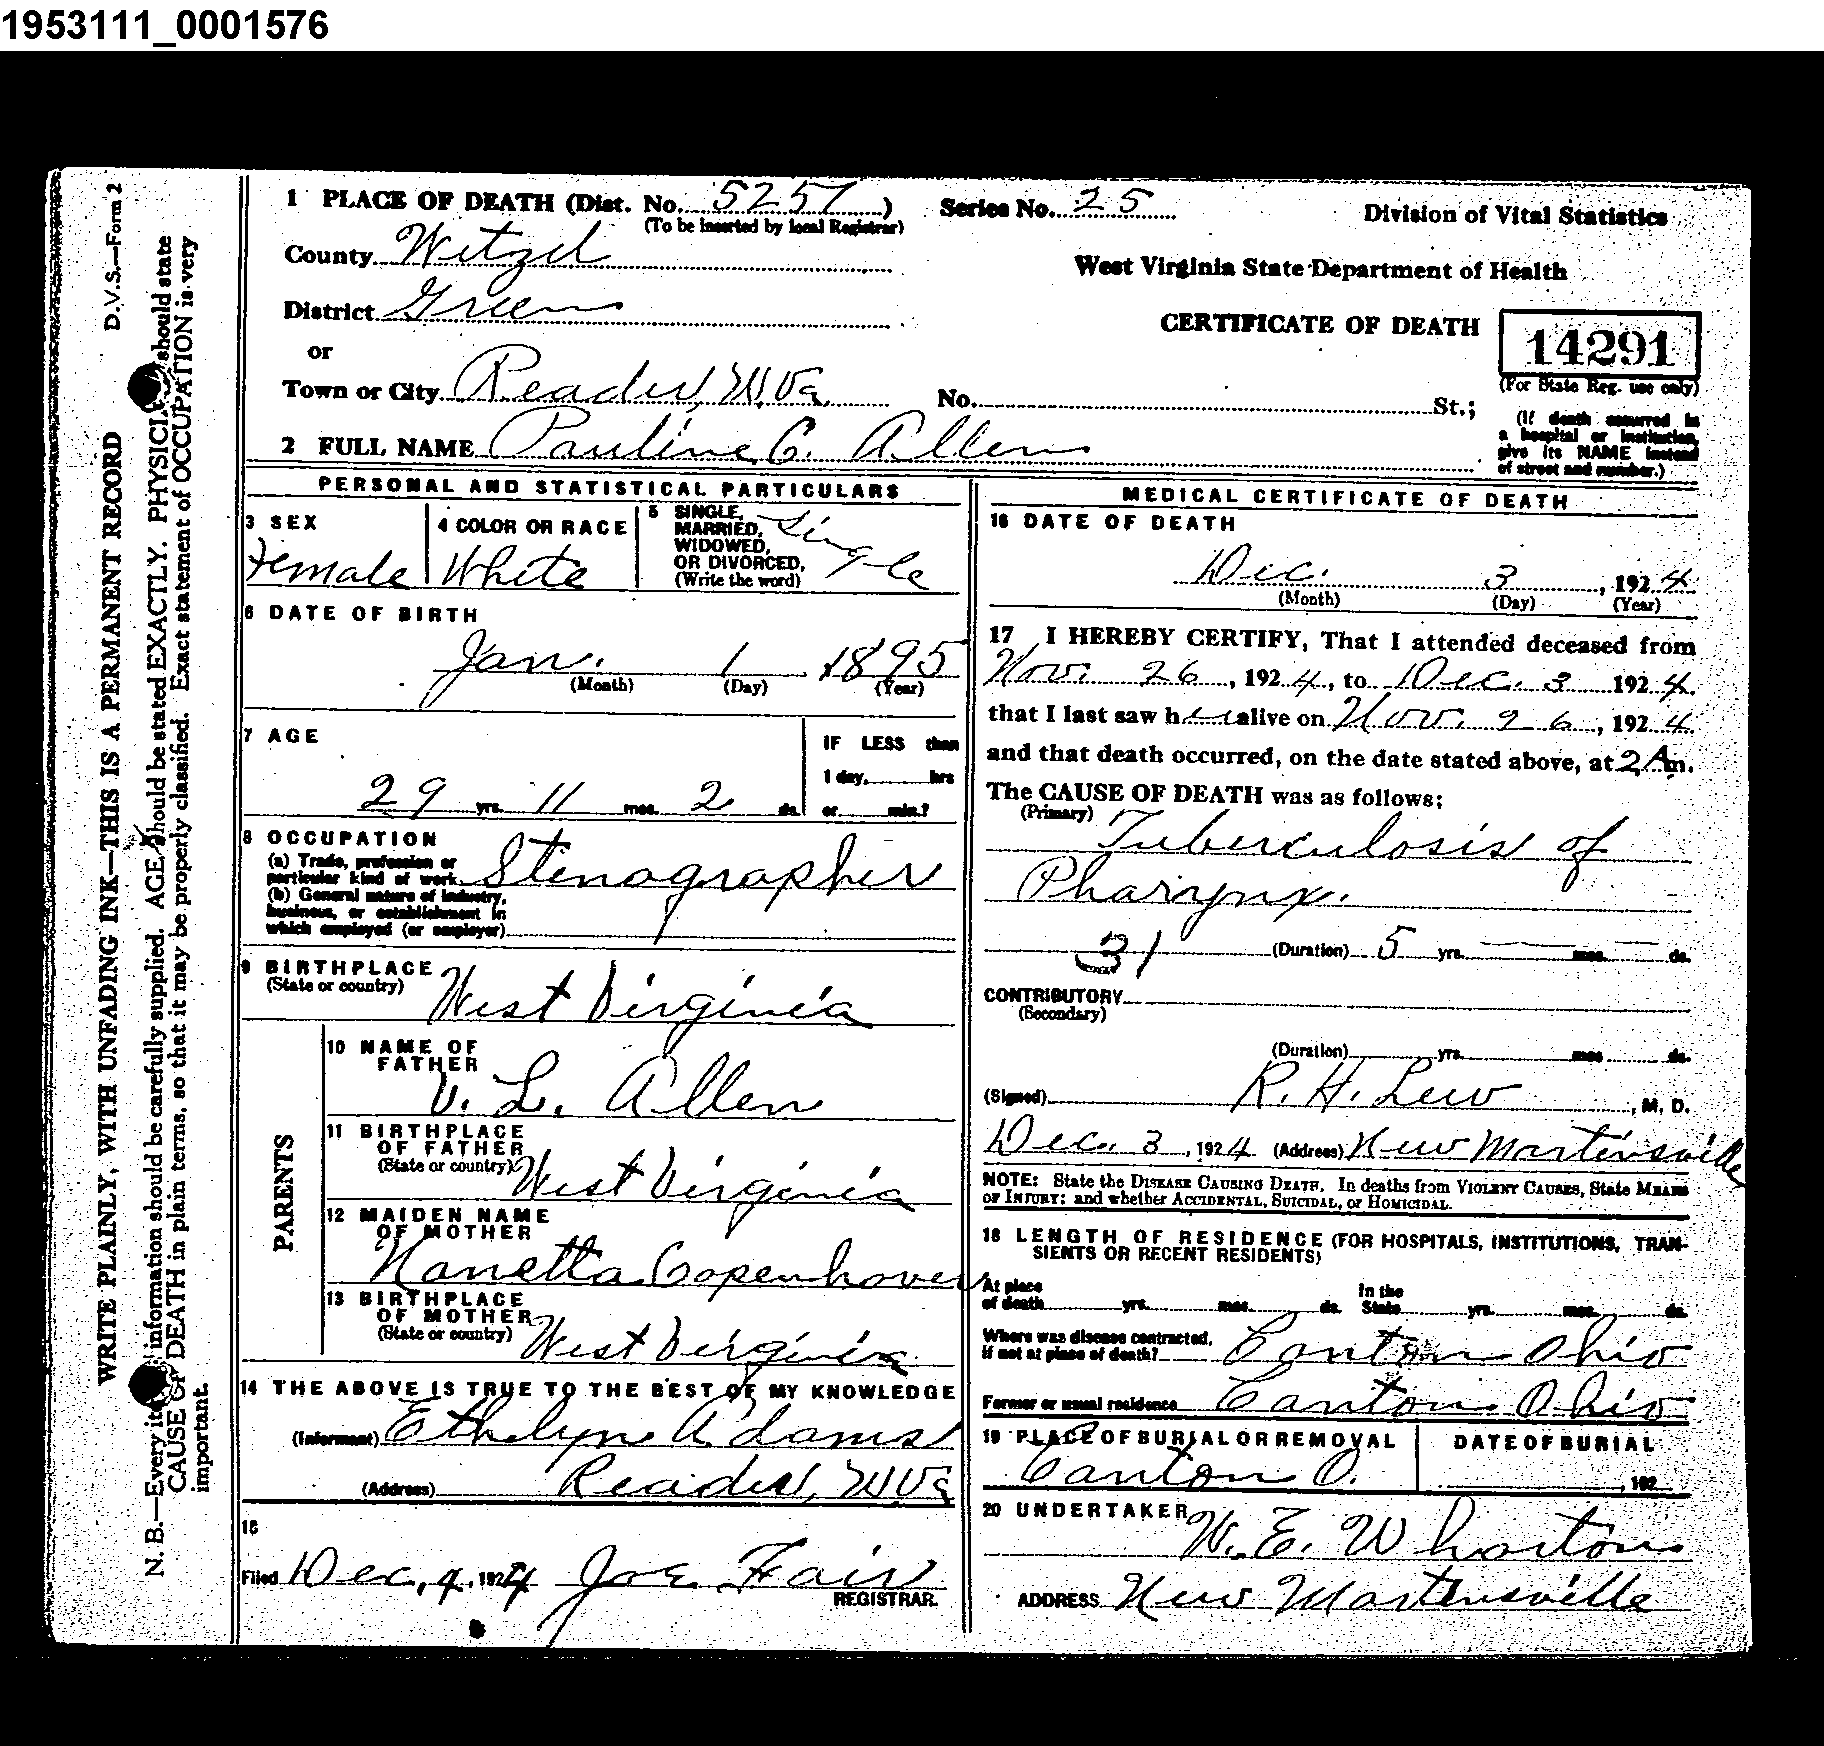 1953111_0001576
D.V.S.—Form 2
WRITE PLAINLY, WITH UNFADING INK—THIS IS A PERMANENT RECORD
N. B.—Every information should be carefully supplied. AGE should be stated EXACTLY. PHYSICI should state
CAUSE OF DEATH in plain terms, so that it may be properly classified. Exact statement of OCCUPATION is very
important.
1 PLACE OF DEATH (Dist. No. 5257) Series No. 25
(To be inserted by local Registrar)
Division of Vital Statistics
County Wetzel
West Virginia State Department of Health
District Green
CERTIFICATE OF DEATH
14291
(For State Reg. use only)
or
Town or City Reader, W.Va. No. St.;
(If death occurred in
a hospital or institution,
give its NAME instead
of street and number.)
2 FULL NAME Pauline C. Allen
PERSONAL AND STATISTICAL PARTICULARS
3 SEX
Female
4 COLOR OR RACE
White
5 SINGLE,
MARRIED,
WIDOWED,
OR DIVORCED,
(Write the word)
Single
6 DATE OF BIRTH
Jan. 1 1895
(Month) (Day) (Year)
7 AGE
29 yrs. 11 mos. 2 ds.
IF LESS than
1 day, hrs
or min.?
8 OCCUPATION
(a) Trade, profession or
particular kind of work Stenographer
(b) General nature of industry,
business, or establishment in
which employed (or employer)
9 BIRTHPLACE
(State or country) West Virginia
PARENTS
10 NAME OF
FATHER
V. L. Allen
11 BIRTHPLACE
OF FATHER
(State or country) West Virginia
12 MAIDEN NAME
OF MOTHER
Nanetta Copenhaver
13 BIRTHPLACE
OF MOTHER
(State or country) West Virginia
14 THE ABOVE IS TRUE TO THE BEST OF MY KNOWLEDGE
(Informant) Ethelyn Adams
(Address) Reader, W.Va
15
Filed Dec. 4, 1924 Joe Fair
REGISTRAR.
MEDICAL CERTIFICATE OF DEATH
16 DATE OF DEATH
Dec. 3, 1924
(Month) (Day) (Year)
17 I HEREBY CERTIFY, That I attended deceased from
Nov. 26, 1924, to Dec. 3 1924
that I last saw her alive on Nov. 26, 1924
and that death occurred, on the date stated above, at 2 A.m.
The CAUSE OF DEATH was as follows:
(Primary)
Tuberculosis of
Pharynx.
31 (Duration) 5 yrs. — mos. — ds.
CONTRIBUTORY
(Secondary)
(Duration) yrs. mos. ds.
(Signed) R. H. , M. D.
Dec. 3, 1924 (Address) New Martinsville
NOTE: State the DISEASE CAUSING DEATH. In deaths from VIOLENT CAUSES, State MEANS
OF INJURY; and whether ACCIDENTAL, SUICIDAL, or HOMICIDAL.
18 LENGTH OF RESIDENCE (FOR HOSPITALS, INSTITUTIONS, TRAN-
SIENTS OR RECENT RESIDENTS)
At place
of death yrs. mos. ds.
In the
State yrs. mos. ds.
Where was disease contracted,
if not at place of death? Canton Ohio
Former or usual residence Canton Ohio
19 PLACE OF BURIAL OR REMOVAL
Canton O.
DATE OF BURIAL
, 192
20 UNDERTAKER
W. E. Wharton
ADDRESS New Martinsville